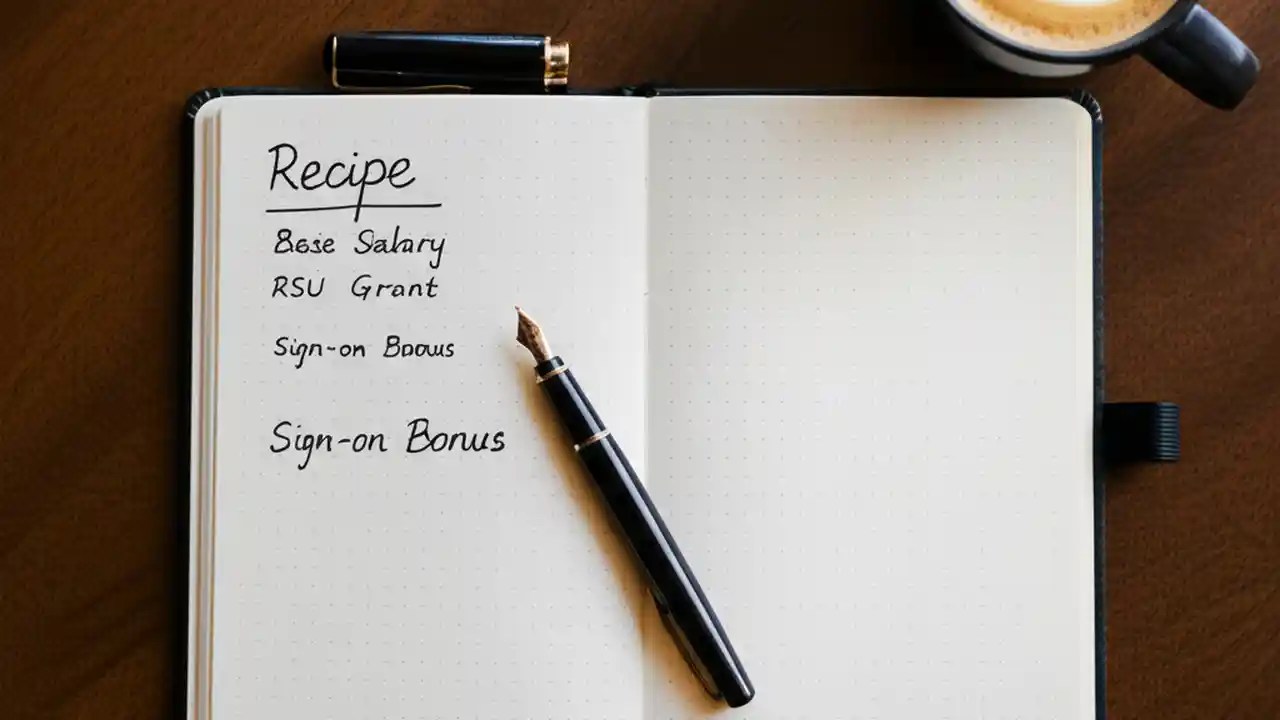 Recipe
Base Salary
RSU Grant
Sign-on Bonus
Sign-on Bonus